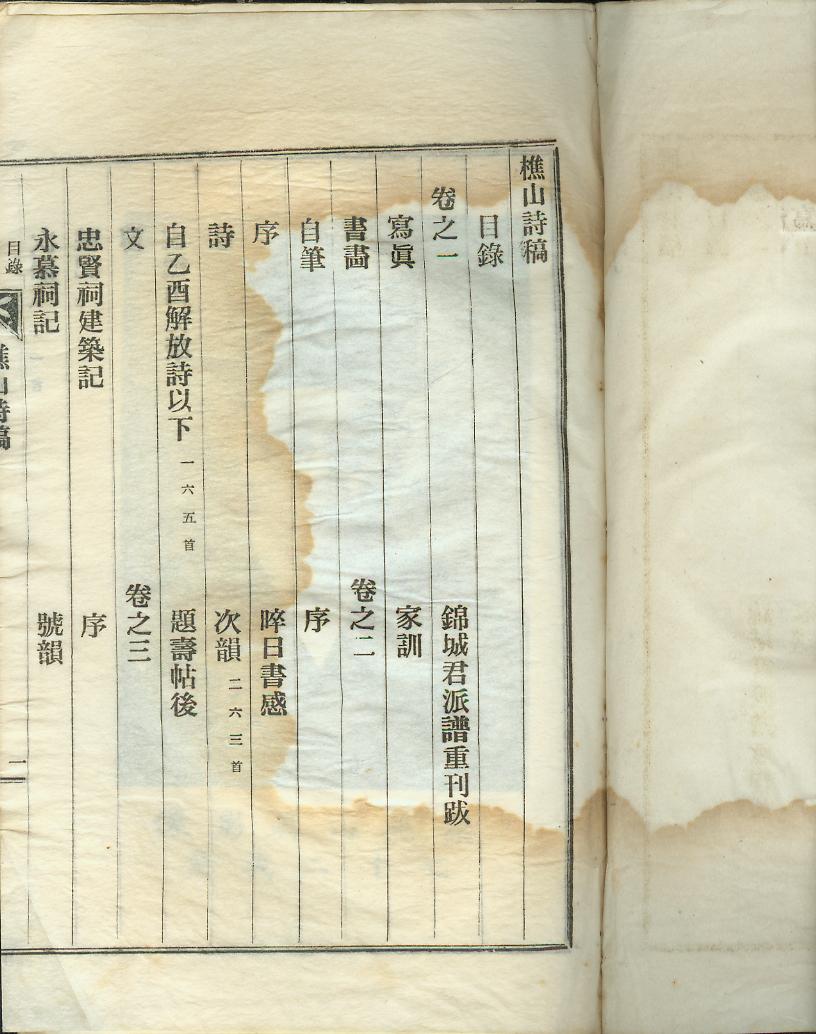 樵山詩稿
目錄
卷之一
寫眞
書畵
自筆
序
詩
自乙酉解放詩以下 一六五首
文
忠賢祠建築記
永慕祠記
錦城君派譜重刊跋
家訓
卷之二
序
晬日書感
次韻 二六三首
題壽帖後
卷之三
序
號韻
目錄
樵山詩稿
一